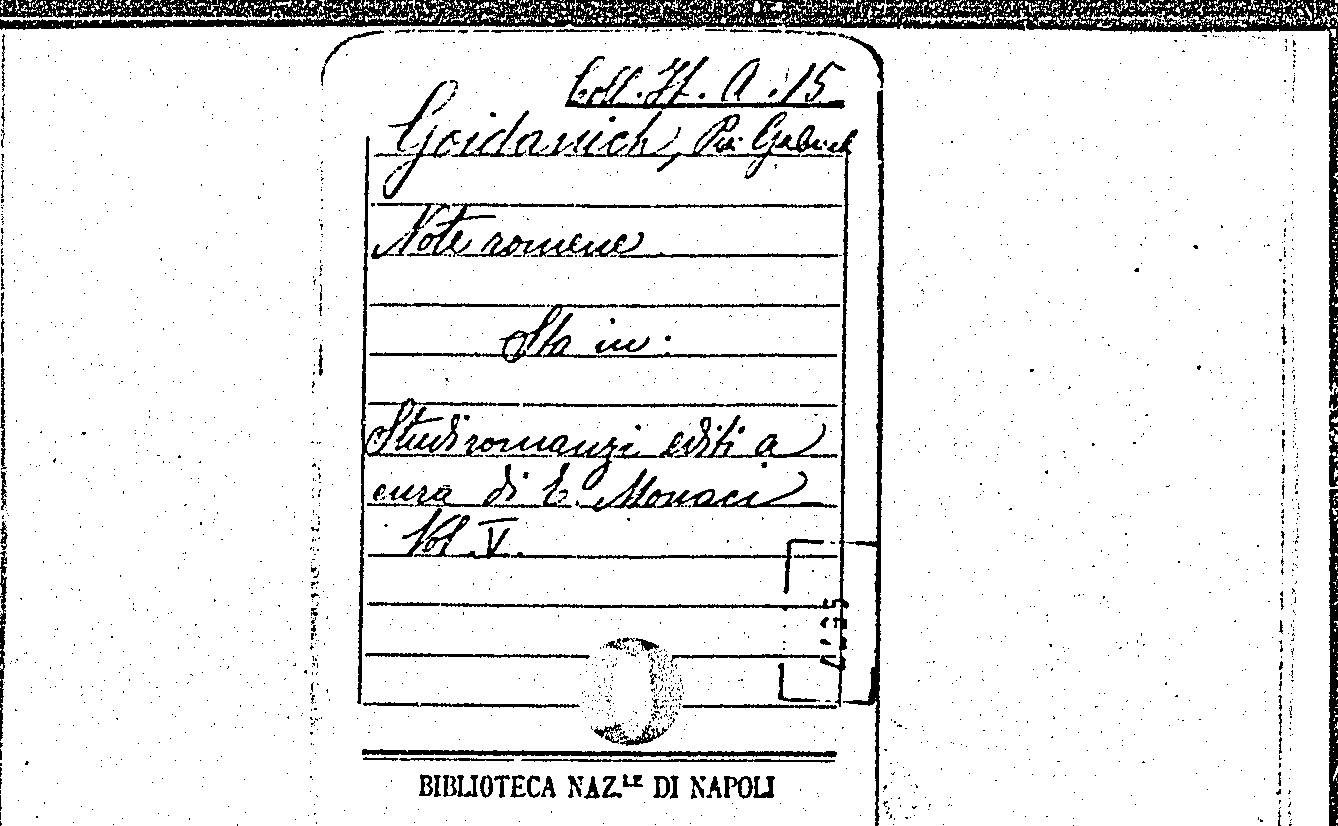 Coll. It. A. 15
Goidanich, Pier Gabriele
Note romene
Sta in:
Studi romanzi editi a
cura di E. Monaci
Vol. V.
BIBLIOTECA NAZ.LE DI NAPOLI